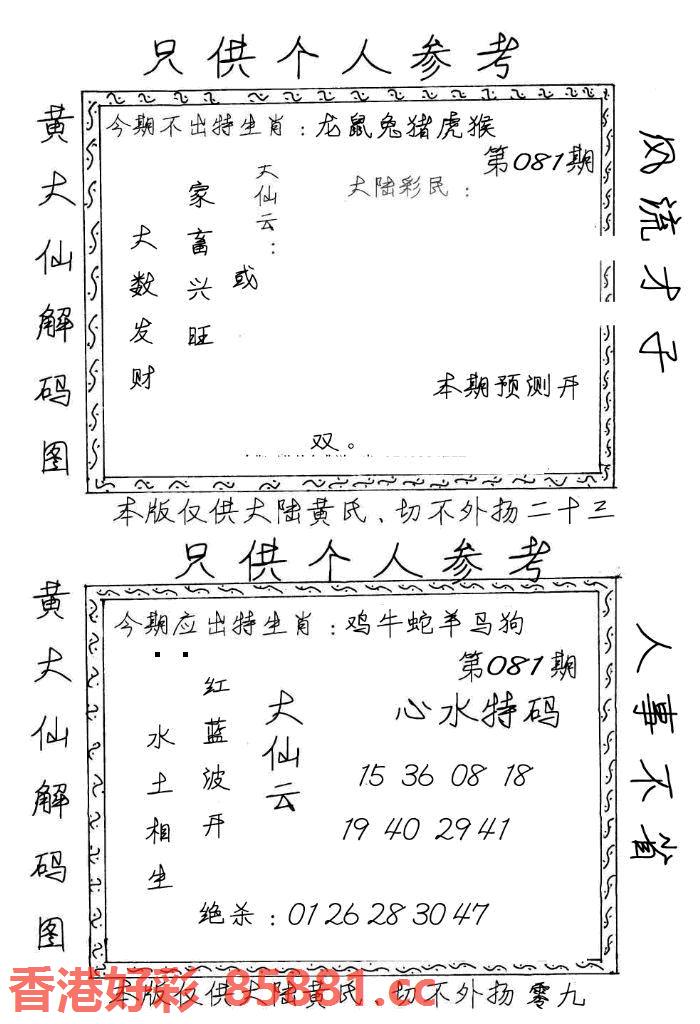 只供个人参考
黄大仙解码图
今期不出特生肖：龙鼠兔猪虎猴
第081期
大仙云：
家畜兴旺
或
大数发财
大陆彩民：
本期预测开
双。
风流才子
本版仅供大陆黄氏、切不外扬二十三
只供个人参考
黄大仙解码图
今期应出特生肖：鸡牛蛇羊马狗
第081期
大仙云
红蓝波开
水土相生
心水特码
15 36 08 18
19 40 29 41
绝杀：01 26 28 30 47
人事不省
本版仅供大陆黄氏、切不外扬零九
香港好彩 85881.cc